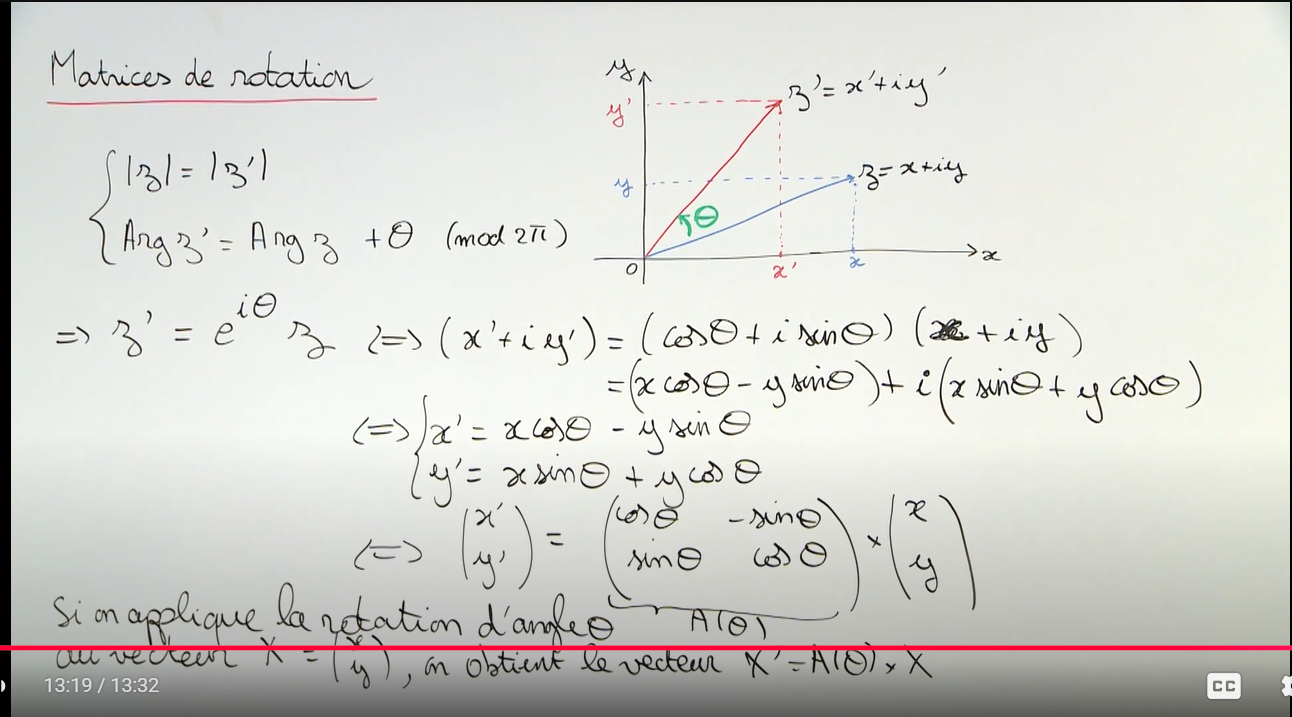 Matrices de rotation
y
y'
z' = x' + iy'
|z| = |z'|
y
z = x + iy
θ
Arg z' = Arg z + θ (mod 2π)
O
x'
x
x
=> z' = e^{iθ} z <=> (x' + iy') = (cosθ + i sinθ) (x + iy)
= (x cosθ - y sinθ) + i(x sinθ + y cosθ)
<=> { x' = x cosθ - y sinθ
y' = x sinθ + y cosθ
<=> (x' y') = (cosθ -sinθ sinθ cosθ) × (x y)
A(θ)
Si on applique la rotation d'angle θ
au vecteur X = (x y), on obtient le vecteur X' = A(θ) × X
13:19 / 13:32
CC